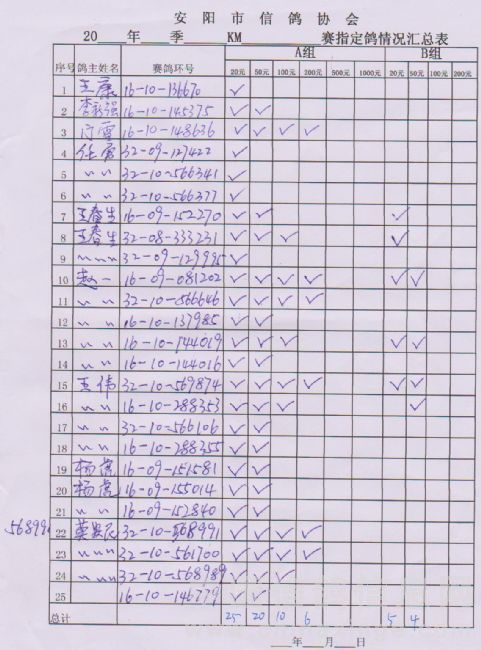 安阳市信鸽协会
20 年 季 KM 赛指定鸽情况汇总表
序号 鸽主姓名 赛鸽环号 A组 B组
20元 50元 100元 200元 500元 1000元 20元 50元 100元 200元
1 王康 16-10-136670 ✓
2 16-10-145375 ✓ ✓
3 16-10-148636 ✓ ✓ ✓ ✓
4 任雷 32-09-127422 ✓
5 〃 〃 32-10-566341 ✓
6 〃 〃 32-10-566377 ✓
7 王春生 16-09-152270 ✓ ✓ ✓
8 王春生 32-08-333231 ✓ ✓ ✓ ✓
9 〃 〃 〃 32-09-129995 ✓
10 赵一 16-09-081202 ✓ ✓ ✓ ✓ ✓ ✓
11 〃 〃 32-10-566646 ✓ ✓ ✓ ✓
12 〃 〃 16-10-137985 ✓ ✓
13 〃 〃 16-10-144019 ✓ ✓ ✓ ✓ ✓
14 〃 〃 16-10-144016 ✓ ✓
15 王伟 32-10-569874 ✓ ✓ ✓ ✓ ✓ ✓
16 〃 〃 16-10-288353 ✓ ✓ ✓ ✓
17 〃 〃 32-10-566106 ✓ ✓
18 〃 〃 16-10-288355 ✓ ✓
19 杨虎 16-09-151581 ✓ ✓
20 杨虎 16-09-155014 ✓ ✓
21 〃 〃 16-09-152840 ✓ ✓
22 32-10-568991 ✓ ✓ ✓ ✓
23 〃 〃 〃 32-10-561700 ✓ ✓ ✓ ✓
24 〃 〃 〃 32-10-568989 ✓ ✓ ✓
25 16-10-146779 ✓ ✓
总计 25 20 10 6 5 4
年 月 日